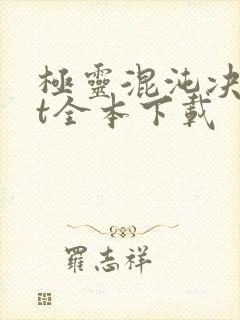 極靈混沌决
t全本下載
羅志祥